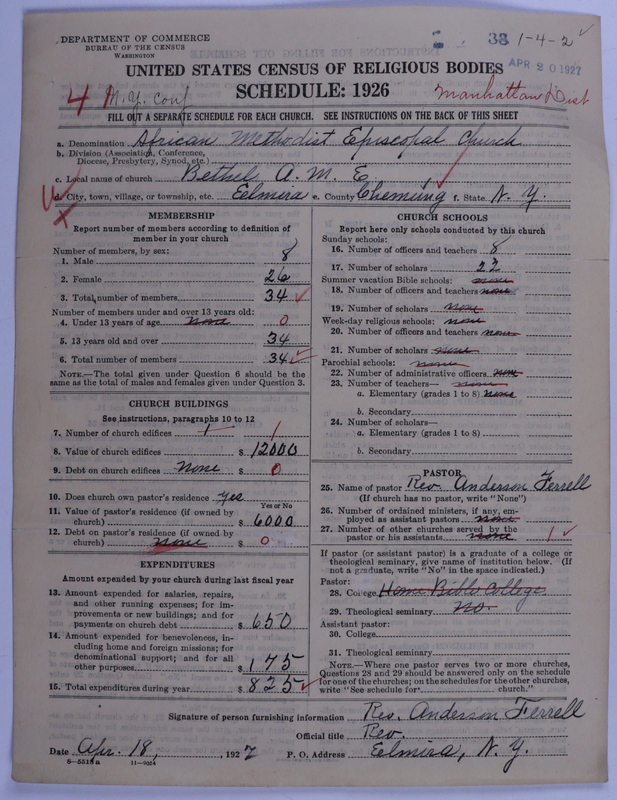 DEPARTMENT OF COMMERCE
BUREAU OF THE CENSUS
WASHINGTON
33 1-4-2
APR 20 1927
UNITED STATES CENSUS OF RELIGIOUS BODIES
SCHEDULE: 1926
4 N.Y. Conf
Manhattan Dist
FILL OUT A SEPARATE SCHEDULE FOR EACH CHURCH. SEE INSTRUCTIONS ON THE BACK OF THIS SHEET
a. Denomination African Methodist Episcopal Church
b. Division (Association, Conference, Diocese, Presbytery, Synod, etc.)
c. Local name of church Bethel A. M. E.
d. City, town, village, or township, etc. Eelmira e. County Chemung f. State N. Y.
MEMBERSHIP
Report number of members according to definition of member in your church
Number of members, by sex:
1. Male 8
2. Female 26
3. Total number of members 34
Number of members under and over 13 years old:
4. Under 13 years of age none 0
5. 13 years old and over 34
6. Total number of members 34
NOTE.—The total given under Question 6 should be the same as the total of males and females given under Question 3.
CHURCH BUILDINGS
See instructions, paragraphs 10 to 12
7. Number of church edifices 1 1
8. Value of church edifices $ 12000
9. Debt on church edifices None $ 0
10. Does church own pastor's residence yes
Yes or No
11. Value of pastor's residence (if owned by church) $ 6000
12. Debt on pastor's residence (if owned by church) none $ 0
EXPENDITURES
Amount expended by your church during last fiscal year
13. Amount expended for salaries, repairs, and other running expenses; for improvements or new buildings; and for payments on church debt $ 650
14. Amount expended for benevolences, including home and foreign missions; for denominational support; and for all other purposes $ 175
15. Total expenditures during year $ 825
CHURCH SCHOOLS
Report here only schools conducted by this church
Sunday schools:
16. Number of officers and teachers 8
17. Number of scholars 22
Summer vacation Bible schools: none
18. Number of officers and teachers none
19. Number of scholars none
Week-day religious schools: none
20. Number of officers and teachers none
21. Number of scholars none
Parochial schools: none
22. Number of administrative officers none
23. Number of teachers— none
a. Elementary (grades 1 to 8) none
b. Secondary
24. Number of scholars—
a. Elementary (grades 1 to 8)
b. Secondary
PASTOR
25. Name of pastor Rev. Anderson Ferrell
(If church has no pastor, write "None")
26. Number of ordained ministers, if any, employed as assistant pastors none
27. Number of other churches served by the pastor or his assistants none 1
If pastor (or assistant pastor) is a graduate of a college or theological seminary, give name of institution below. (If not a graduate, write "No" in the space indicated.)
Pastor:
28. College Home Bible College
29. Theological seminary No.
Assistant pastor:
30. College
31. Theological seminary
NOTE.—Where one pastor serves two or more churches, Questions 28 and 29 should be answered only on the schedule for one of the churches; on the schedules for the other churches, write "See schedule for church."
Signature of person furnishing information Rev. Anderson Ferrell
Official title Rev.
Date Apr. 18, 1927 P. O. Address Eelmira, N. Y.
8—5513a 11—9264